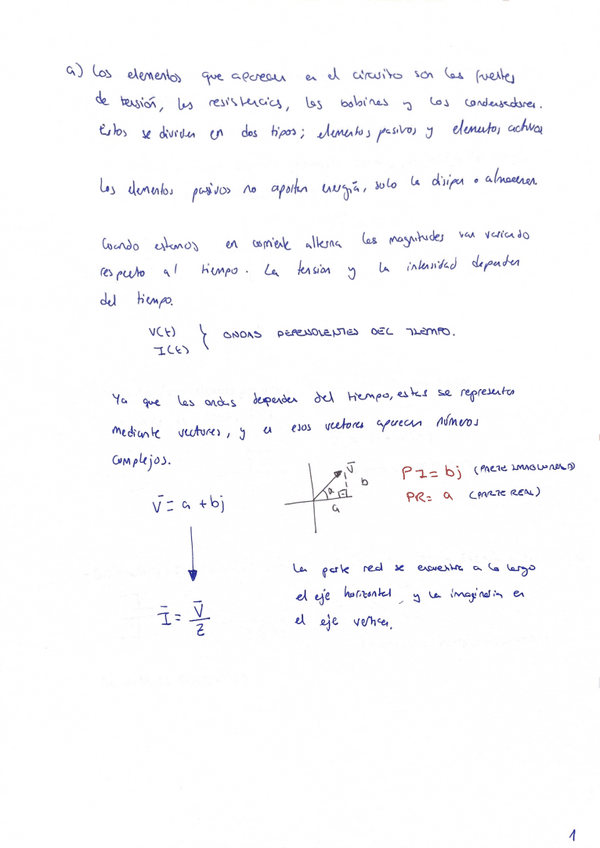 a) Los elementos que aparecen en el circuito son las fuentes
de tensión, las resistencias, las bobinas y los condensadores.
Estos se dividen en dos tipos; elementos pasivos y elementos activos
Los elementos pasivos no aportan energía, solo la disipan o almacenan.
Cuando estamos en corriente alterna las magnitudes van variando
respecto al tiempo. La tensión y la intensidad dependen
del tiempo.
V(t)
I(t) } ONDAS DEPENDIENTES DEL TIEMPO.
Ya que las ondas dependen del tiempo, estas se representan
mediante vectores, y en esos vectores aparecen números
complejos.
V̄ = a + bj
V̄
b
α
a
PI = bj (PARTE IMAGINARIA)
PR = a (PARTE REAL)
Ī = V̄ / Z
La parte real se encuentra a lo largo
el eje horizontal, y la imaginaria en
el eje vertical.
1